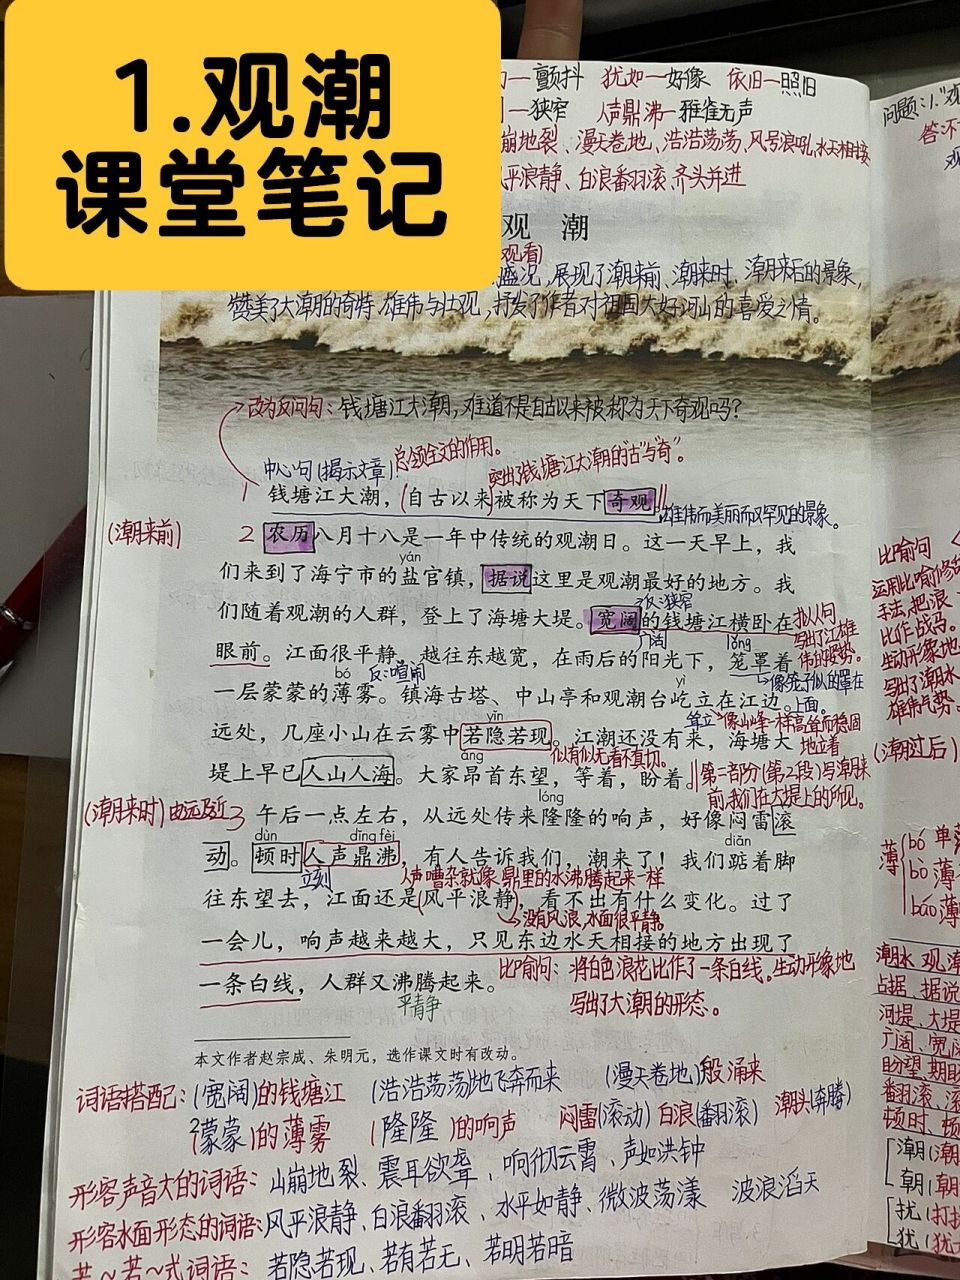 1.观潮
课堂笔记
一颤抖 犹如一好像 依旧一照旧
一狭窄 人声鼎沸一雅雀无声
崩地裂、漫天卷地、浩浩荡荡、风号浪吼、水天相接
平浪静、白浪翻滚、齐头并进
观 潮
观看)
盛况,展现了潮来前、潮来时、潮来后的景象,
赞美了大潮的奇特、雄伟与壮观,抒发了作者对祖国大好河山的喜爱之情。
改为反问句:钱塘江大潮,难道不是自古以来被称为天下奇观吗?
中心句(揭示文章) 总领全文的作用。
突出了钱塘江大潮的"古"与"奇"。
1 钱塘江大潮,自古以来被称为天下奇观。
雄伟而美丽而又罕见的景象。
(潮来前) 2 农历八月十八是一年中传统的观潮日。这一天早上,我
yán
们来到了海宁市的盐官镇,据说这里是观潮最好的地方。我
反:狭窄
们随着观潮的人群,登上了海塘大堤。宽阔的钱塘江横卧在
拟人句
写出了江雄
伟的姿势。
广阔 lǒng
眼前。江面很平静,越往东越宽,在雨后的阳光下,笼罩着
bó 反:喧闹
像笼子似的罩在
上面。
一层蒙蒙的薄雾。镇海古塔、中山亭和观潮台屹立在江边。
yì
yǐn
耸立 像山峰一样高耸而稳固
地立着
远处,几座小山在云雾中若隐若现。江潮还没有来,海塘大
áng 似有似无看不真切。
堤上早已人山人海。大家昂首东望,等着,盼着。
第二部分(第2段)写潮来
前,我们在大堤上的所见。
(潮来时) 由远及近 3 午后一点左右,从远处传来隆隆的响声,好像闷雷滚
lóng
dùn dǐng fèi diǎn
动。顿时人声鼎沸,有人告诉我们,潮来了!我们踮着脚
立刻 人声嘈杂就像鼎里的水沸腾起来一样
往东望去,江面还是风平浪静,看不出有什么变化。过了
没有风浪,水面很平静。
一会儿,响声越来越大,只见东边水天相接的地方出现了
一条白线,人群又沸腾起来。
比喻句:将白色浪花比作了一条白线。生动形象地
写出了大潮的形态。
平静
本文作者赵宗成、朱明元,选作课文时有改动。
词语搭配:(宽阔)的钱塘江 (浩浩荡荡)地飞奔而来 (漫天卷地)般涌来
(蒙蒙)的薄雾 (隆隆)的响声 闷雷(滚动) 白浪(翻滚) 潮头(奔腾)
形容声音大的词语:山崩地裂、震耳欲聋、响彻云霄、声如洪钟
形容水面形态的词语:风平浪静、白浪翻滚、水平如静、微波荡漾 波浪滔天
若~若~式词语:若隐若现、若有若无、若明若暗
问题:1."观
答:
比喻句
运用比喻修
手法,把浪
比作战马。
生动形象地
写出了潮水
雄伟气势。
(潮过后)
薄 bó 单
bò 薄
báo 薄
潮水 观潮
占据、据说
河堤、大堤
广阔、宽
盼望 期盼
翻滚、滚
顿时、顿
潮(潮
朝(朝
扰(打扰
犹(犹